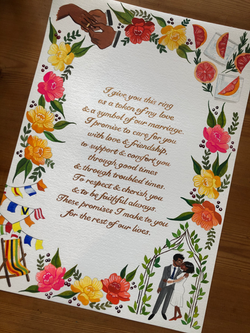 I give you this ring
as a token of my love
& a symbol of our marriage.
I promise to care for you
with love & friendship,
to support & comfort you
through good times
& through troubled times.
To respect & cherish you
& to be faithful always.
These promises I make to you
for the rest of our lives.